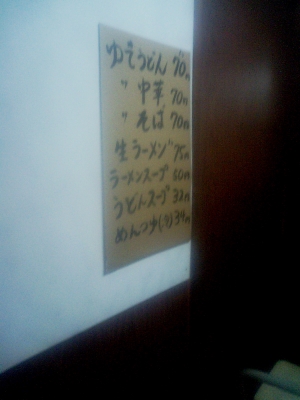 ゆでうどん 70円
〃 中華 70円
〃 そば 70円
生ラーメン 75円
ラーメンスープ 60円
うどんスープ 32円
めんつゆ